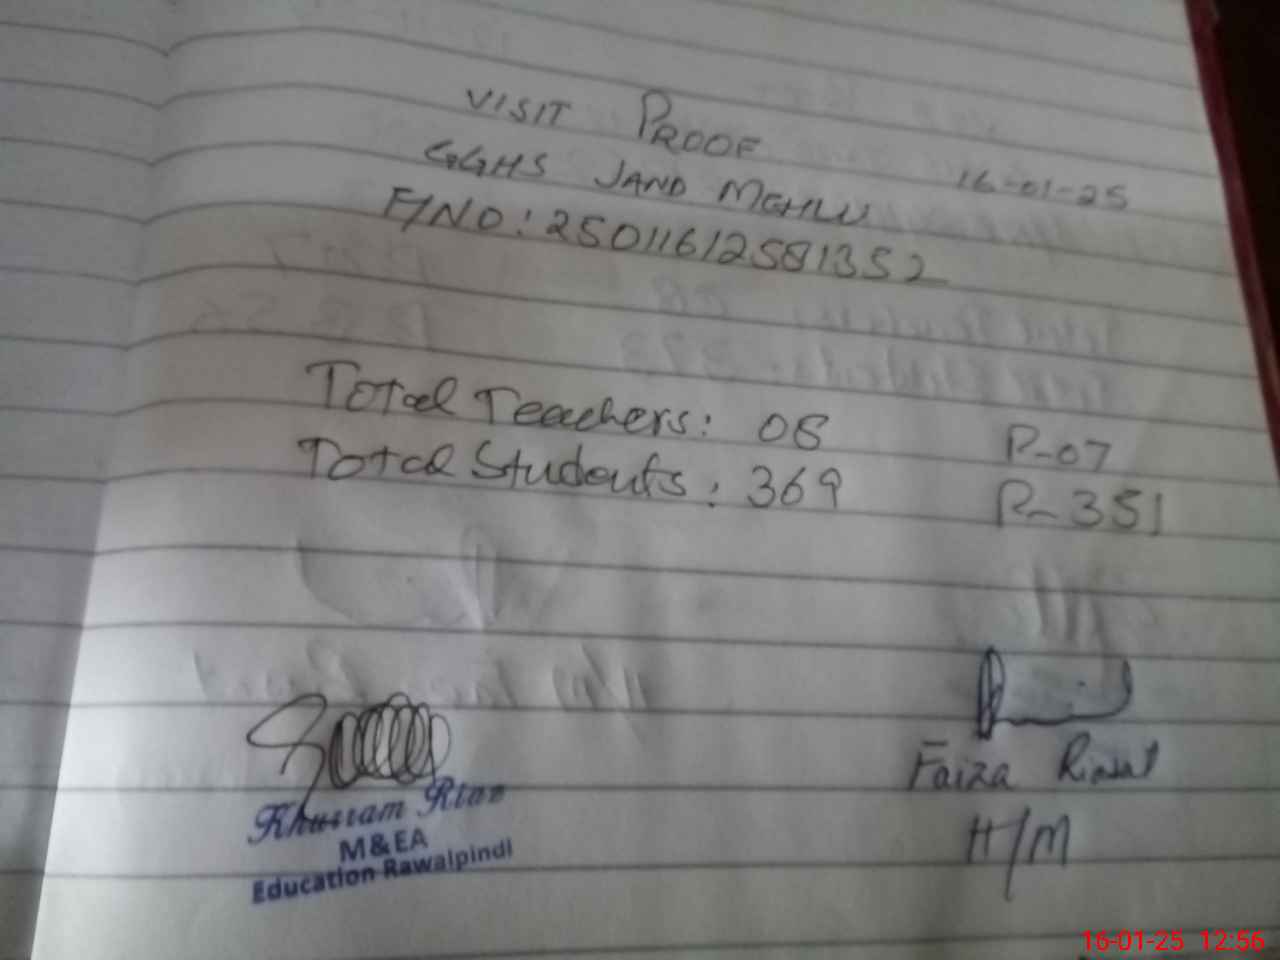 VISIT PROOF
16-01-25
GGHS JAND MEHLU
F/NO: 25011612581352
Total Teachers: 08 P-07
Total Students: 369 P-351
Khurram Riaz
M&EA
Education Rawalpindi
Faiza
H/M
16-01-25 12:56